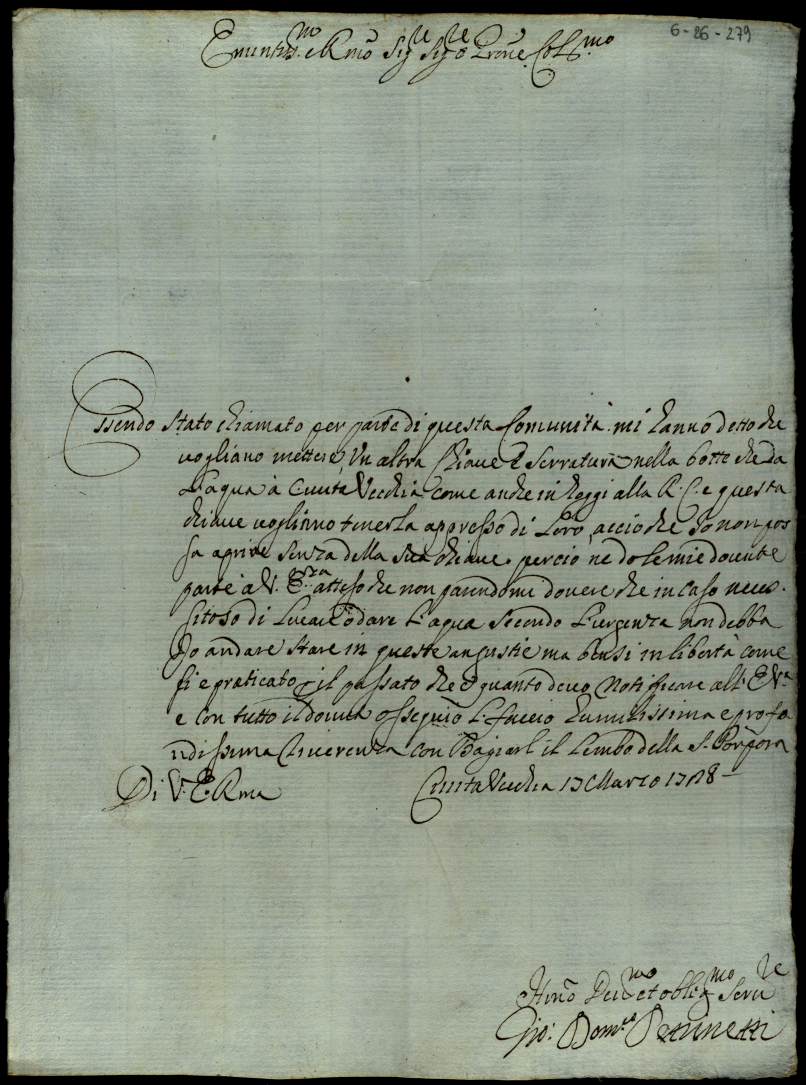 6-26-279
Eminentiss.mo e Rmo Sig.re Sig.re e Prone Col.mo
Essendo stato chiamato per parte di questa Comunità mi hanno detto che
vogliano mettere Un altra Chiave e Serratura nella botte che da
L'aqua à Civita Vecchia come anche in heggi alla R. C. e questa
chiave vogliono tenerla appresso di Loro, acciò che Io non pos
sa aprire senza della sua chiave. perciò ne do le mie dovute
parte a V. E.nza atteso che non parendomi dovere che in caso neces
sitoso di Levar l'o dare L'aqua secondo L'urgenza non debba
Io andare stare in queste angustie ma bensì in libertà come
si è praticato il passato che è quanto devo Notificare all' E. V.ra
e con tutto il dovuto ossequio Le faccio humilissima e profo
ndissima riverenza con Bagiarli il Lembo della S. Porpora
Di V. E. Rma
Civita Vecchia 17 Marzo 1718
Humo Dev.mo et oblig.mo Serv.re
Gio: Dom.co